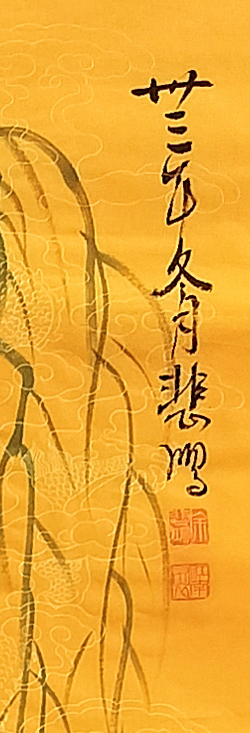 卅三年冬月悲鴻